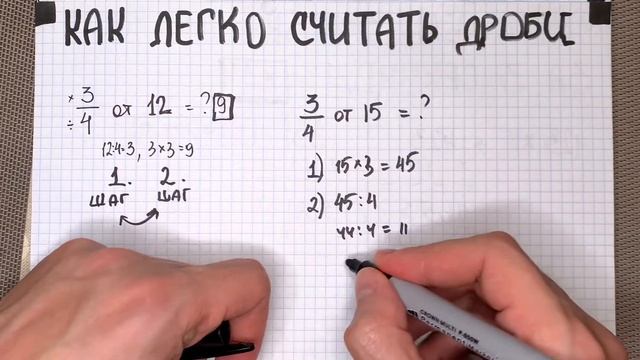 КАК ЛЕГКО СЧИТАТЬ ДРОБИ
× 3/4 ÷ от 12 = ? 9
12:4=3, 3×3=9
1. 2.
ШАГ ШАГ
3/4 от 15 = ?
1) 15×3=45
2) 45:4
44:4=11
CROWN MULTI P-505W